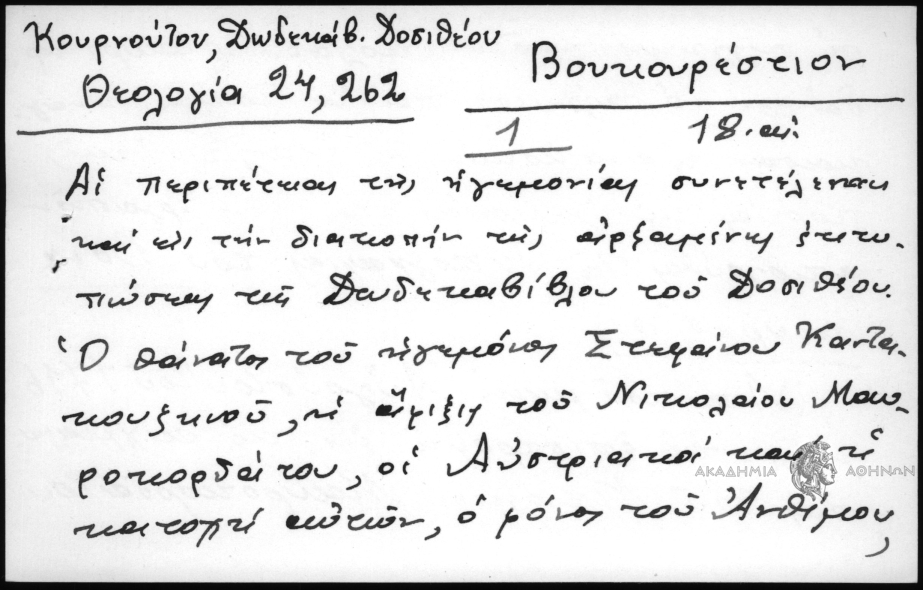 Κουρνούτου, Δωδεκάβ. Δοσιθέου
Θεολογία 24, 262
Βουκουρέστιον
1 18. αἰ.
Αἱ περιπέτειαι τῆς ἡγεμονίας συνετέλεσαν
καὶ εἰς τὴν διακοπὴν τῆς ἀρξαμένης ἐκτυ-
πώσεως τῆς Δωδεκαβίβλου τοῦ Δοσιθέου.
Ὁ θάνατος τοῦ ἡγεμόνος Στεφάνου Καντα-
κουζηνοῦ, ἡ ἄφιξις τοῦ Νικολάου Μαυ-
ροκορδάτου, οἱ Αὐστριακοὶ καὶ ἡ
κατοχή αὐτῶν, ὁ φόνος τοῦ Ἀνθίμου,
ΑΚΑΔΗΜΙΑ ΑΘΗΝΩΝ